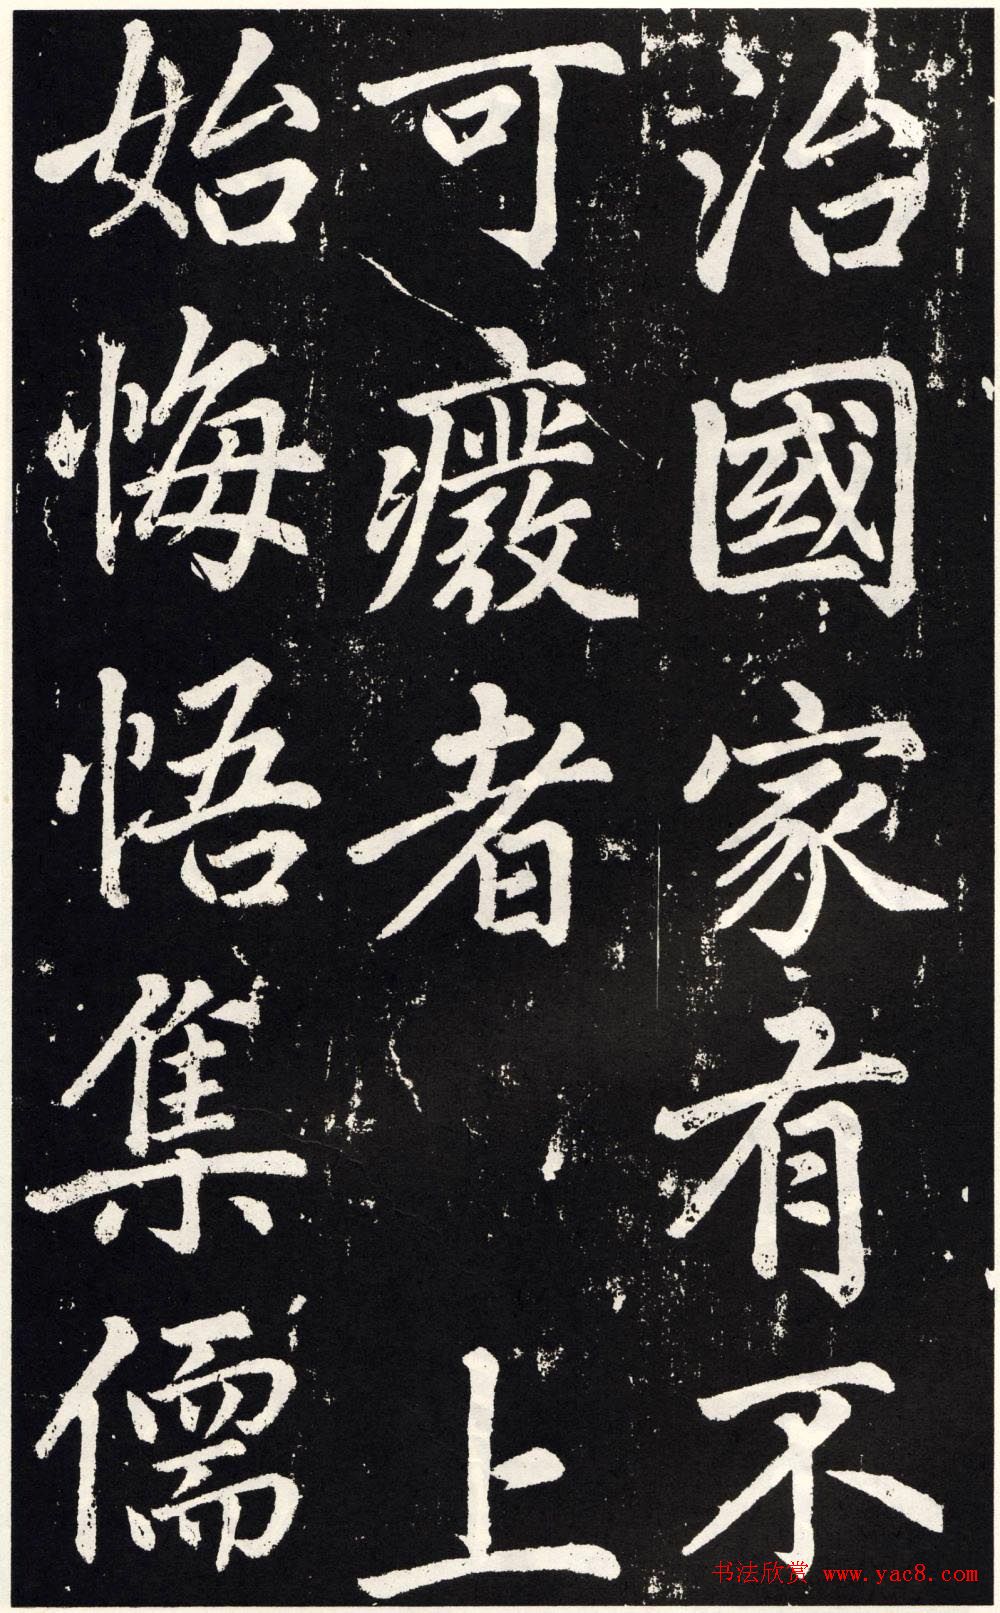 治國家有不
可癈者 上
始悔悟集儒
书法欣赏 www.yac8.com